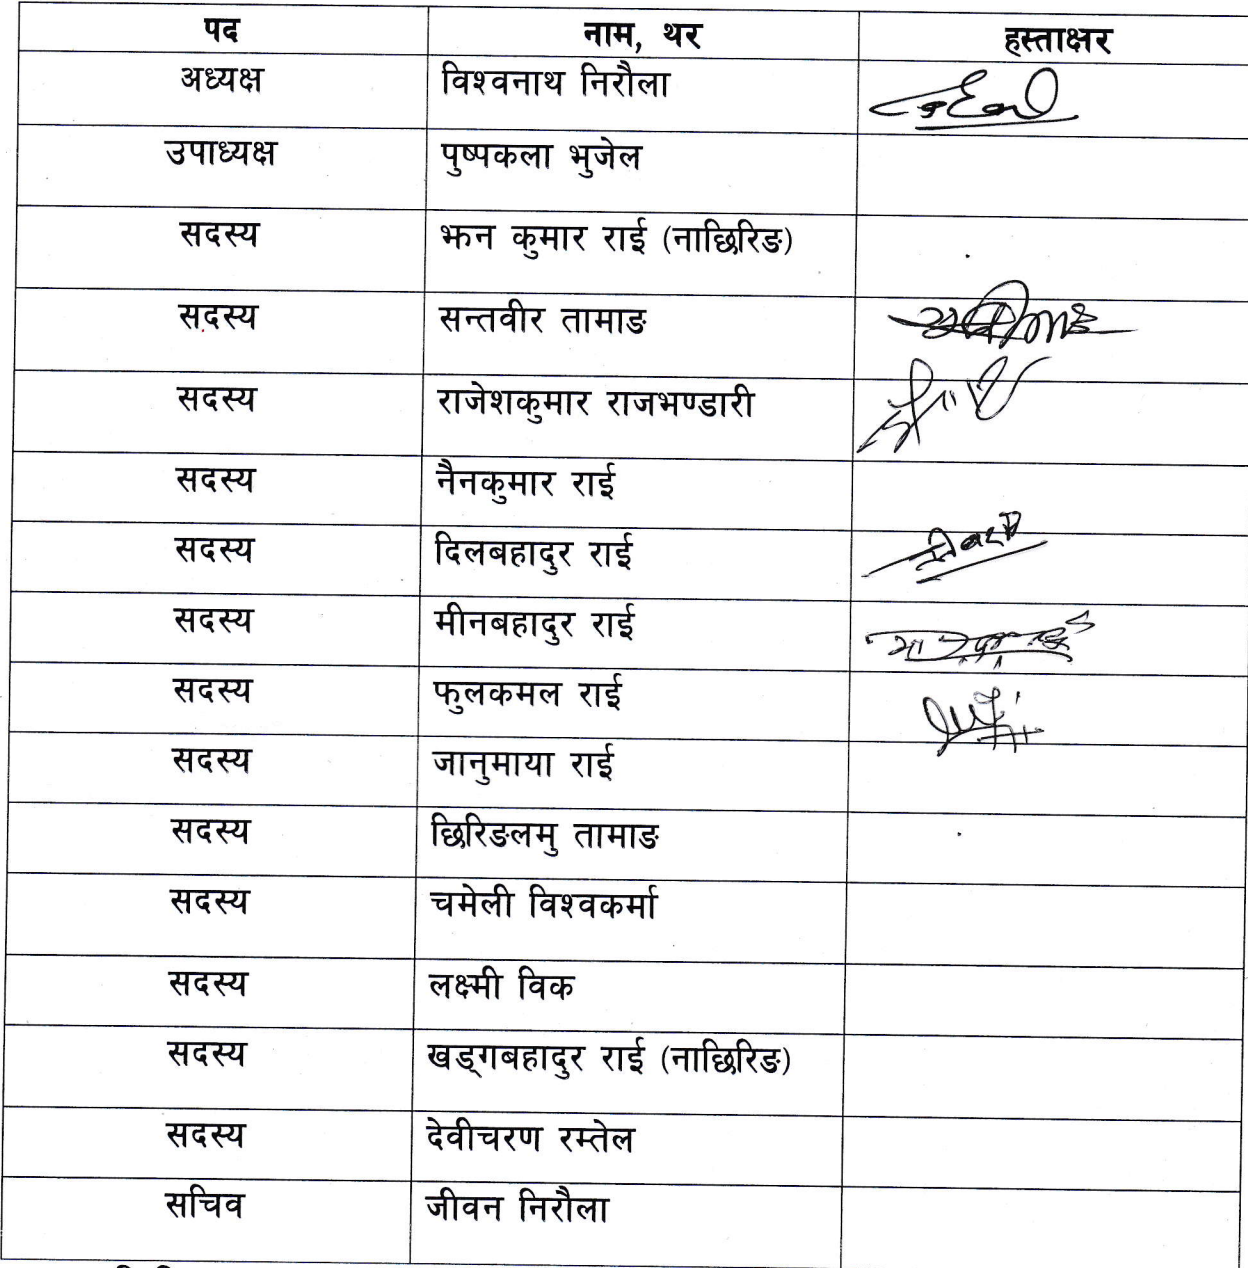 पद नाम, थर हस्ताक्षर
अध्यक्ष विश्वनाथ निरौला
उपाध्यक्ष पुष्पकला भुजेल
सदस्य झन कुमार राई (नाछिरिङ)
सदस्य सन्तवीर तामाङ
सदस्य राजेशकुमार राजभण्डारी
सदस्य नैनकुमार राई
सदस्य दिलबहादुर राई
सदस्य मीनबहादुर राई
सदस्य फुलकमल राई
सदस्य जानुमाया राई
सदस्य छिरिङलमु तामाङ
सदस्य चमेली विश्वकर्मा
सदस्य लक्ष्मी विक
सदस्य खड्गबहादुर राई (नाछिरिङ)
सदस्य देवीचरण रम्तेल
सचिव जीवन निरौला